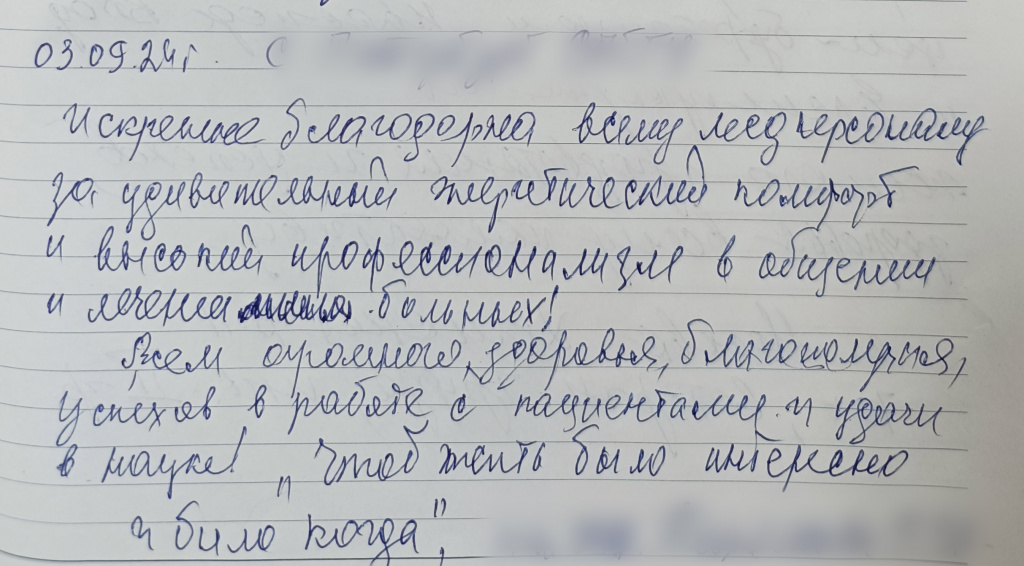 03.09.24г. С
Искренне благодарна всему медперсоналу
за удивительный энергетический комфорт
и высокий профессионализм в общении
и лечении больных!
Всем огромного, здоровья, благополучия,
успехов в работе с пациентами и удачи
в науке! „Чтоб жить было интересно
и было когда",